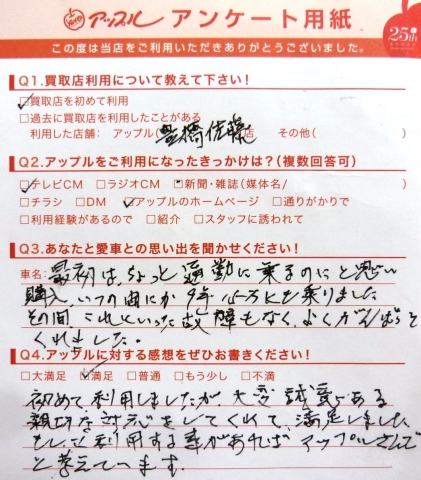 アップル アンケート用紙
25th
この度は当店をご利用いただきありがとうございました。
Q1.買取店利用について教えて下さい!
☑買取店を初めて利用
□過去に買取店を利用したことがある
利用した店舗: アップル(豊橋佐藤店 その他( )
Q2.アップルをご利用になったきっかけは?(複数回答可)
☑テレビCM □ラジオCM □新聞・雑誌(媒体名/ )
□チラシ □DM ☑アップルのホームページ □通りがかりで
□利用経験があるので □紹介 □スタッフに誘われて
Q3.あなたと愛車との思い出を聞かせください!
車名: 最初は、ちょっと通勤に乗るのにと思い
購入、いつの間にか9年 万kを乗りました
その間、これといった故障もなく、よくがんばって
くれました。
Q4.アップルに対する感想をぜひお書きください!
□大満足 ☑満足 □普通 □もう少し □不満
初めて利用しましたが、大変誠意ある
親切な対応をしてくれて、満足しました
もし、利用する事があれば、アップルさんで
と考えています。